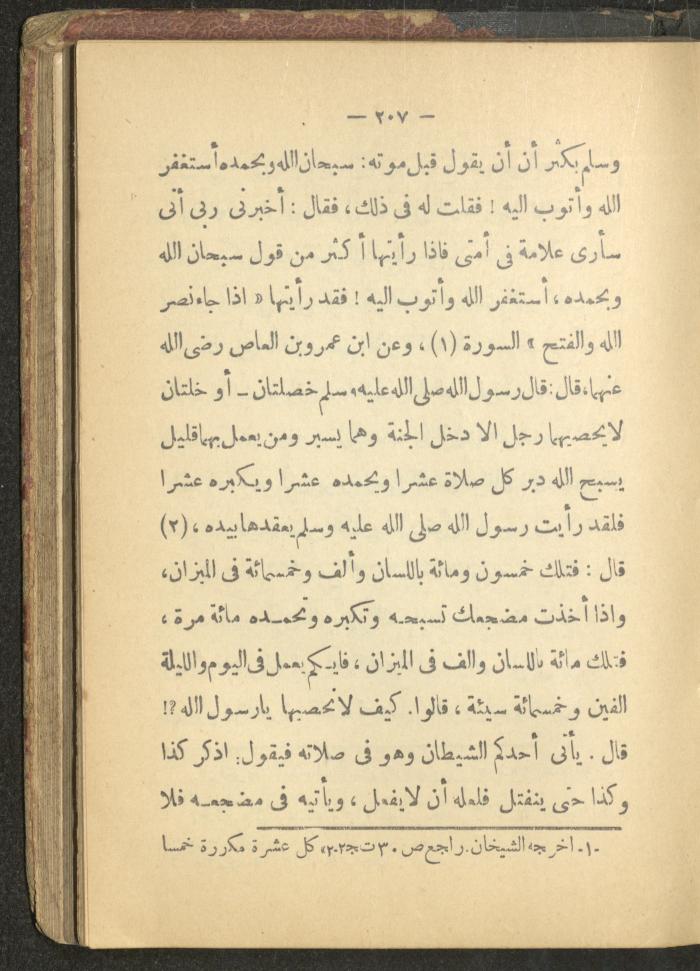 — ٢٠٧ —
وسلم بكثر أن أن يقول قبل موته: سبحان الله وبحمده أستغفر
الله وأتوب اليه ! فقلت له فى ذلك، فقال : أخبرنى ربى أنى
سأرى علامة فى أمتى فاذا رأيتها أكثر من قول سبحان الله
وبحمده، أستغفر الله وأتوب اليه ! فقد رأيتها « اذا جاء نصر
الله والفتح » السورة (١) ، وعن ابن عمرو بن العاص رضى الله
عنهما، قال: قال رسول الله صلى الله عليه وسلم خصلتان ـ أو خلتان
لا يحصيهما رجل الا دخل الجنة وهما يسير ومن يعمل بهما قليل
يسبح الله دبر كل صلاة عشرا ويحمده عشرا ويكبره عشرا
فلقد رأيت رسول الله صلى الله عليه وسلم يعقدها بيده ، (٢)
قال : فتلك خمسون ومائة باللسان وألف وخمسمائة فى الميزان،
واذا أخذت مضجعك تسبحه وتكبره وتحمده مائة مرة ،
فتلك مائة باللسان والف فى الميزان ، فايكم يعمل فى اليوم والليلة
الفين وخمسمائة سيئة ، قالوا. كيف لا نحصيها يارسول الله ?!
قال . يأتى أحدكم الشيطان وهو فى صلاته فيقول: اذكر كذا
وكذا حتى ينفتل فلعله أن لا يفعل ، ويأتيه فى مضجعه فلا
-١- اخرجه الشيخان. راجع ص ٣٠ ت ج٢ـ٢ـ، كل عشرة مكررة خمسا